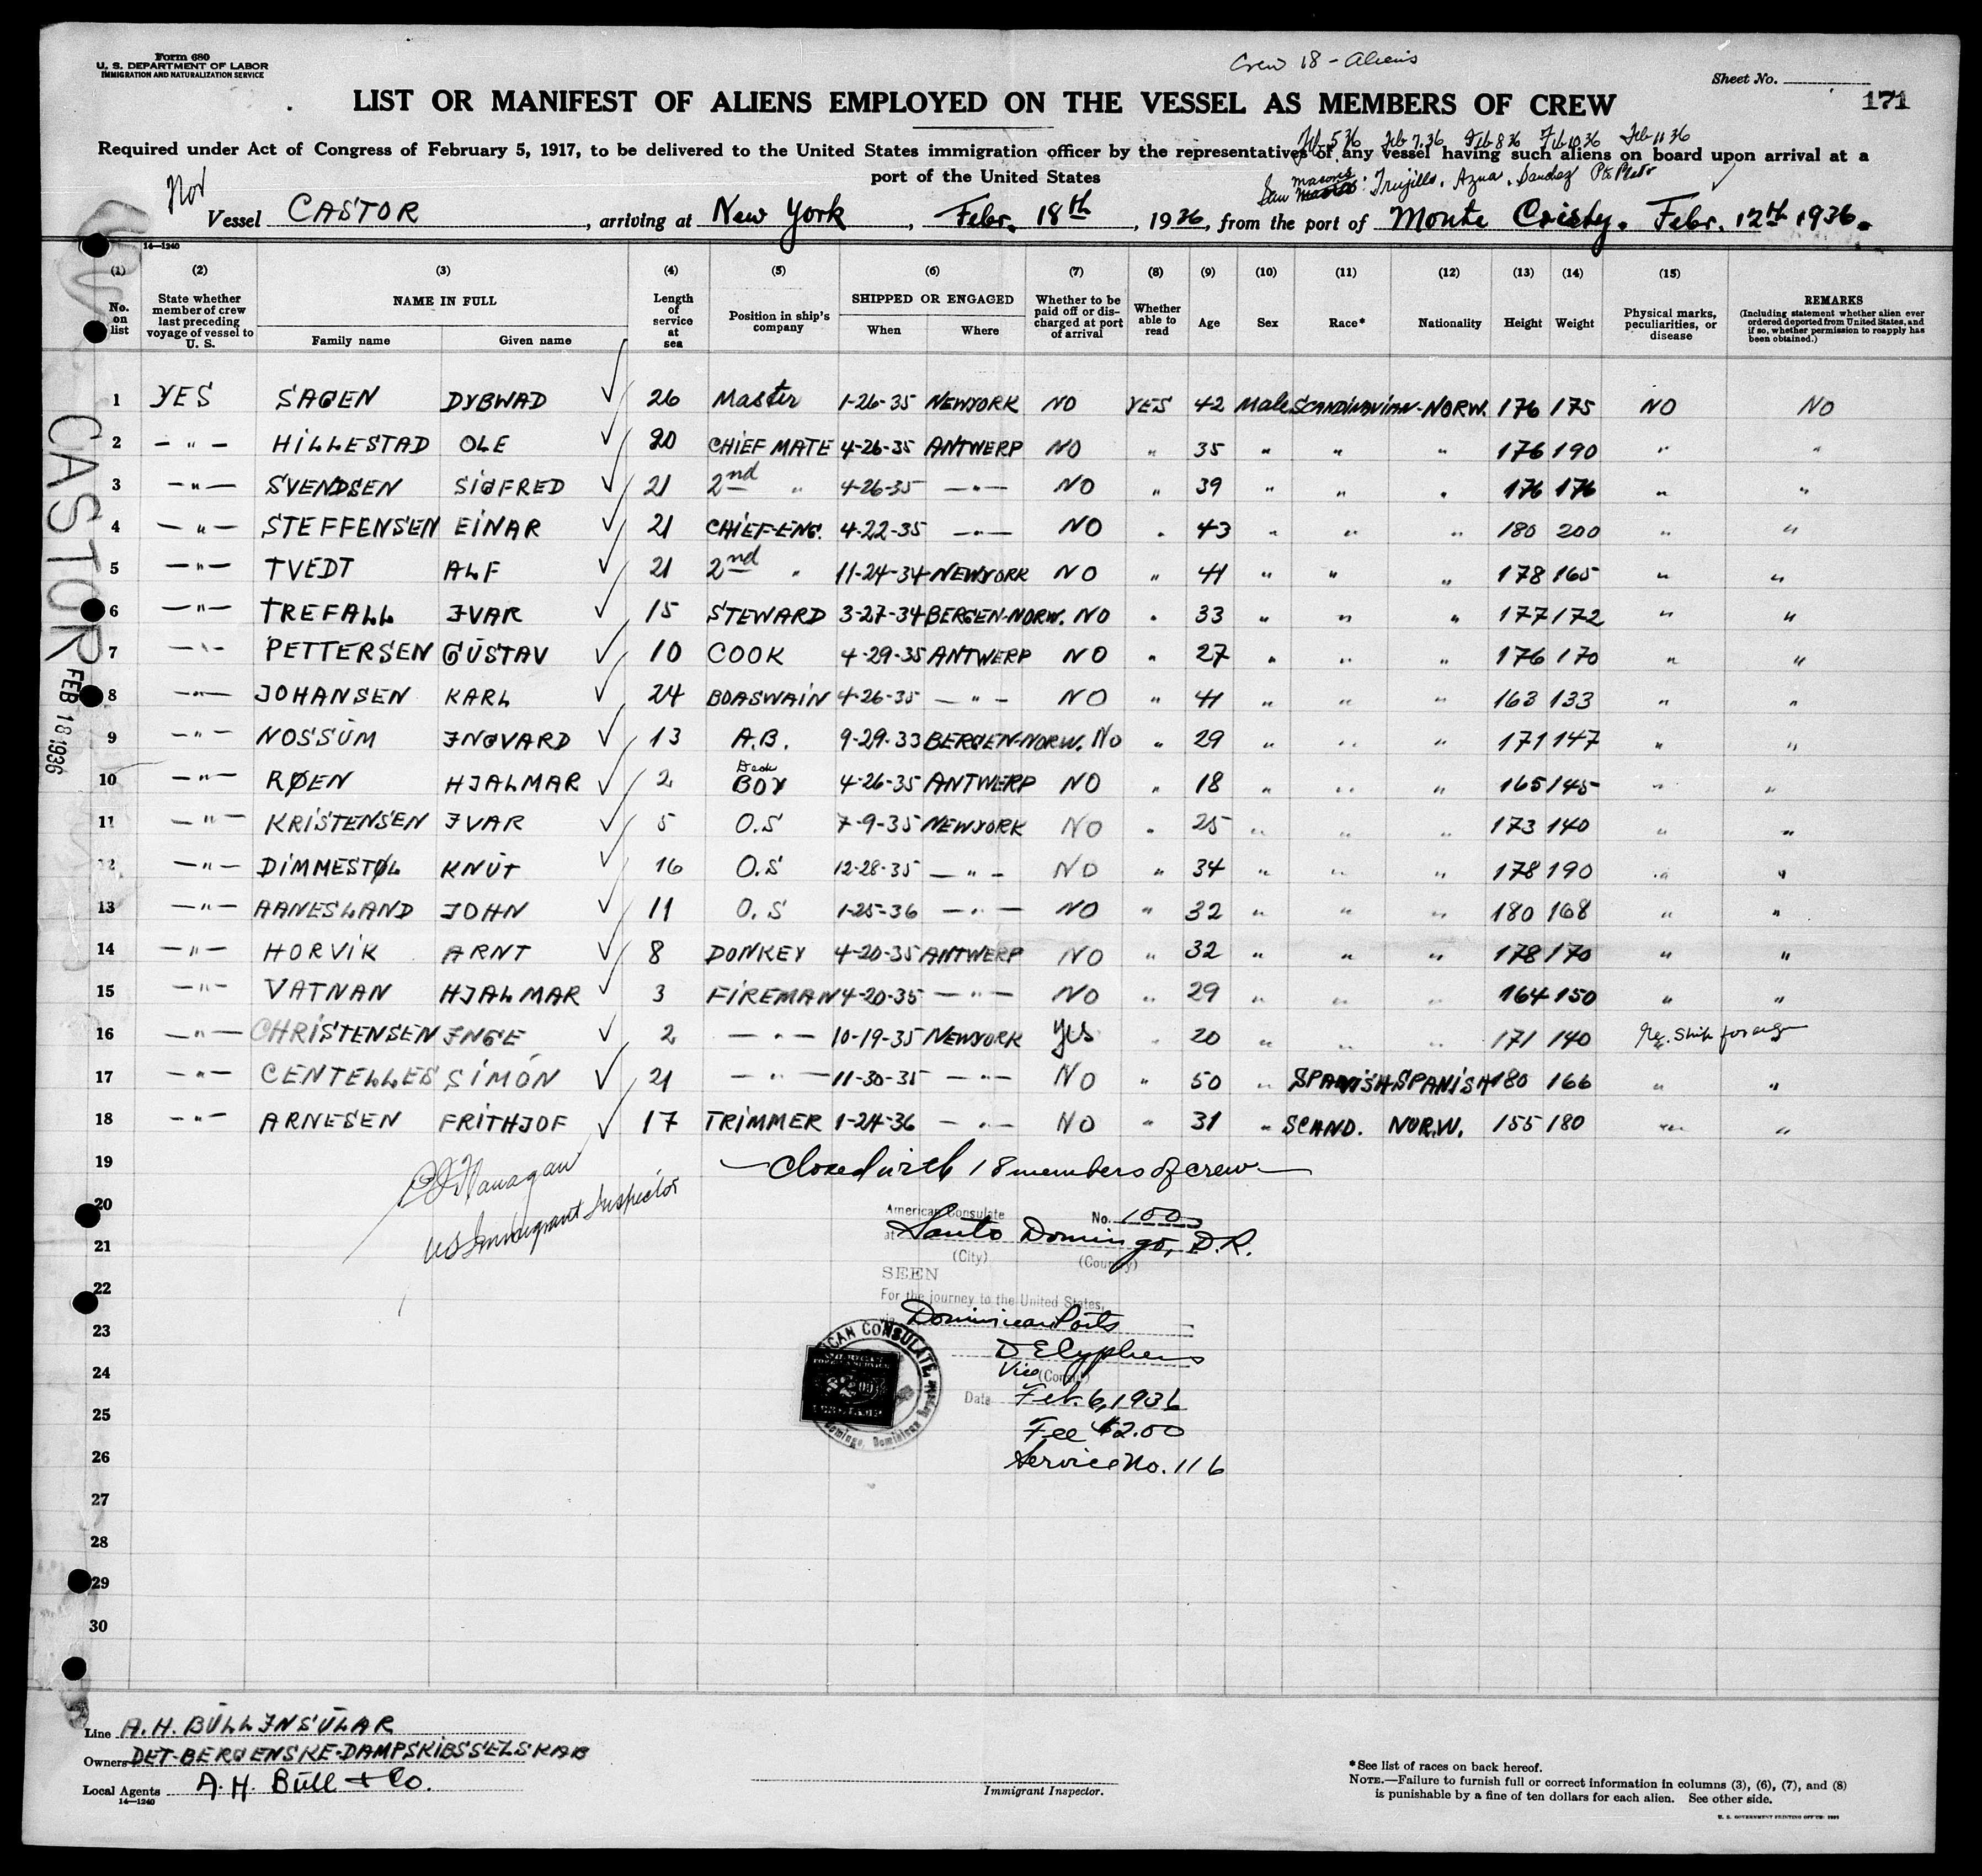 Form 680
U. S. DEPARTMENT OF LABOR
IMMIGRATION AND NATURALIZATION SERVICE
Crew 18 - Aliens
Sheet No.
171
LIST OR MANIFEST OF ALIENS EMPLOYED ON THE VESSEL AS MEMBERS OF CREW
Feb 5 36 Feb 7. 36 Feb 8 36 Feb 10 36 Feb 11 36
Required under Act of Congress of February 5, 1917, to be delivered to the United States immigration officer by the representatives of any vessel having such aliens on board upon arrival at a
port of the United States
San Macoris: Trujillo, Azua, Sanchez Pto Plata
Nor
Vessel CASTOR, arriving at New York, Febr. 18th, 1936, from the port of Monte Cristy. Febr. 12th 1936.
14—1240
(1) (2) (3) (4) (5) (6) (7) (8) (9) (10) (11) (12) (13) (14) (15)
No. on list State whether member of crew last preceding voyage of vessel to U. S. NAME IN FULL Family name Given name Length of service at sea Position in ship's company SHIPPED OR ENGAGED When Where Whether to be paid off or discharged at port of arrival Whether able to read Age Sex Race* Nationality Height Weight Physical marks, peculiarities, or disease REMARKS (Including statement whether alien ever ordered deported from United States, and if so, whether permission to reapply has been obtained.)
1 YES SAGEN DYBWAD ✓ 26 Master 1-26-35 NEWYORK NO YES 42 Male SCANDINAVIAN-NORW. 176 175 NO NO
2 — " — HILLESTAD OLE ✓ 20 CHIEF MATE 4-26-35 ANTWERP NO " 35 " " " 176 190 " "
3 — " — SVENDSEN SIGFRED ✓ 21 2nd " 4-26-35 — " — NO " 39 " " " 176 176 " "
4 — " — STEFFENSEN EINAR ✓ 21 CHIEF-ENG. 4-22-35 — " — NO " 43 " " " 180 200 " "
5 — " — TVEDT ALF ✓ 21 2nd " 11-24-34 NEWYORK NO " 41 " " " 178 165 " "
6 — " — TREFALL IVAR ✓ 15 STEWARD 3-27-34 BERGEN-NORW. NO " 33 " " " 177 172 " "
7 — " — PETTERSEN GUSTAV ✓ 10 COOK 4-29-35 ANTWERP NO " 27 " " " 176 170 " "
8 — " — JOHANSEN KARL ✓ 24 BOASWAIN 4-26-35 — " — NO " 41 " " " 163 133 " "
9 — " — NOSSUM INGVARD ✓ 13 A.B. 9-29-33 BERGEN-NORW. NO " 29 " " " 171 147 " "
10 — " — RØEN HJALMAR ✓ 2 Deck BOY 4-26-35 ANTWERP NO " 18 " " " 165 145 " "
11 — " — KRISTENSEN IVAR ✓ 5 O.S 7-9-35 NEWYORK NO " 25 " " " 173 140 " "
12 — " — DIMMESTØL KNUT ✓ 16 O.S 12-28-35 — " — NO " 34 " " " 178 190 " "
13 — " — AANESLAND JOHN ✓ 11 O.S 1-25-36 — " — NO " 32 " " " 180 168 " "
14 — " — HORVIK ARNT ✓ 8 DONKEY 4-20-35 ANTWERP NO " 32 " " " 178 170 " "
15 — " — VATNAN HJALMAR ✓ 3 FIREMAN 4-20-35 — " — NO " 29 " " " 164 150 " "
16 — " — CHRISTENSEN INGE ✓ 2 — " — 10-19-35 NEWYORK Yes " 20 " " " 171 140 Re. Ship foreign
17 — " — CENTELLES SIMON ✓ 21 — " — 11-30-35 — " — NO " 50 " SPANISH SPANISH 180 166 " "
18 — " — ARNESEN FRITHJOF ✓ 17 TRIMMER 1-24-36 — " — NO " 31 " SCAND. NORW. 155 180 " "
19 — Closed with 18 members of crew —
Flanagan
US Immigrant Inspector
20 American Consulate No. 100
21 at Santo Domingo, D.R.
(City) (Country)
22 SEEN
For the journey to the United States,
23 Dominican Ports
24 Vice (Consul)
Date Feb. 6, 1936
25 Fee $2.00
26 Service No. 116
27
28
29
30
AMERICAN CONSULATE
Domingo, Dominican Republic
CASTOR
FEB 18 1936
Line A. H. BULL INSULAR
Owners DET-BERGENSKE-DAMPSKIBSSELSKAB
Local Agents A. H. Bull + Co.
14—1240
Immigrant Inspector.
*See list of races on back hereof.
NOTE.—Failure to furnish full or correct information in columns (3), (6), (7), and (8)
is punishable by a fine of ten dollars for each alien. See other side.